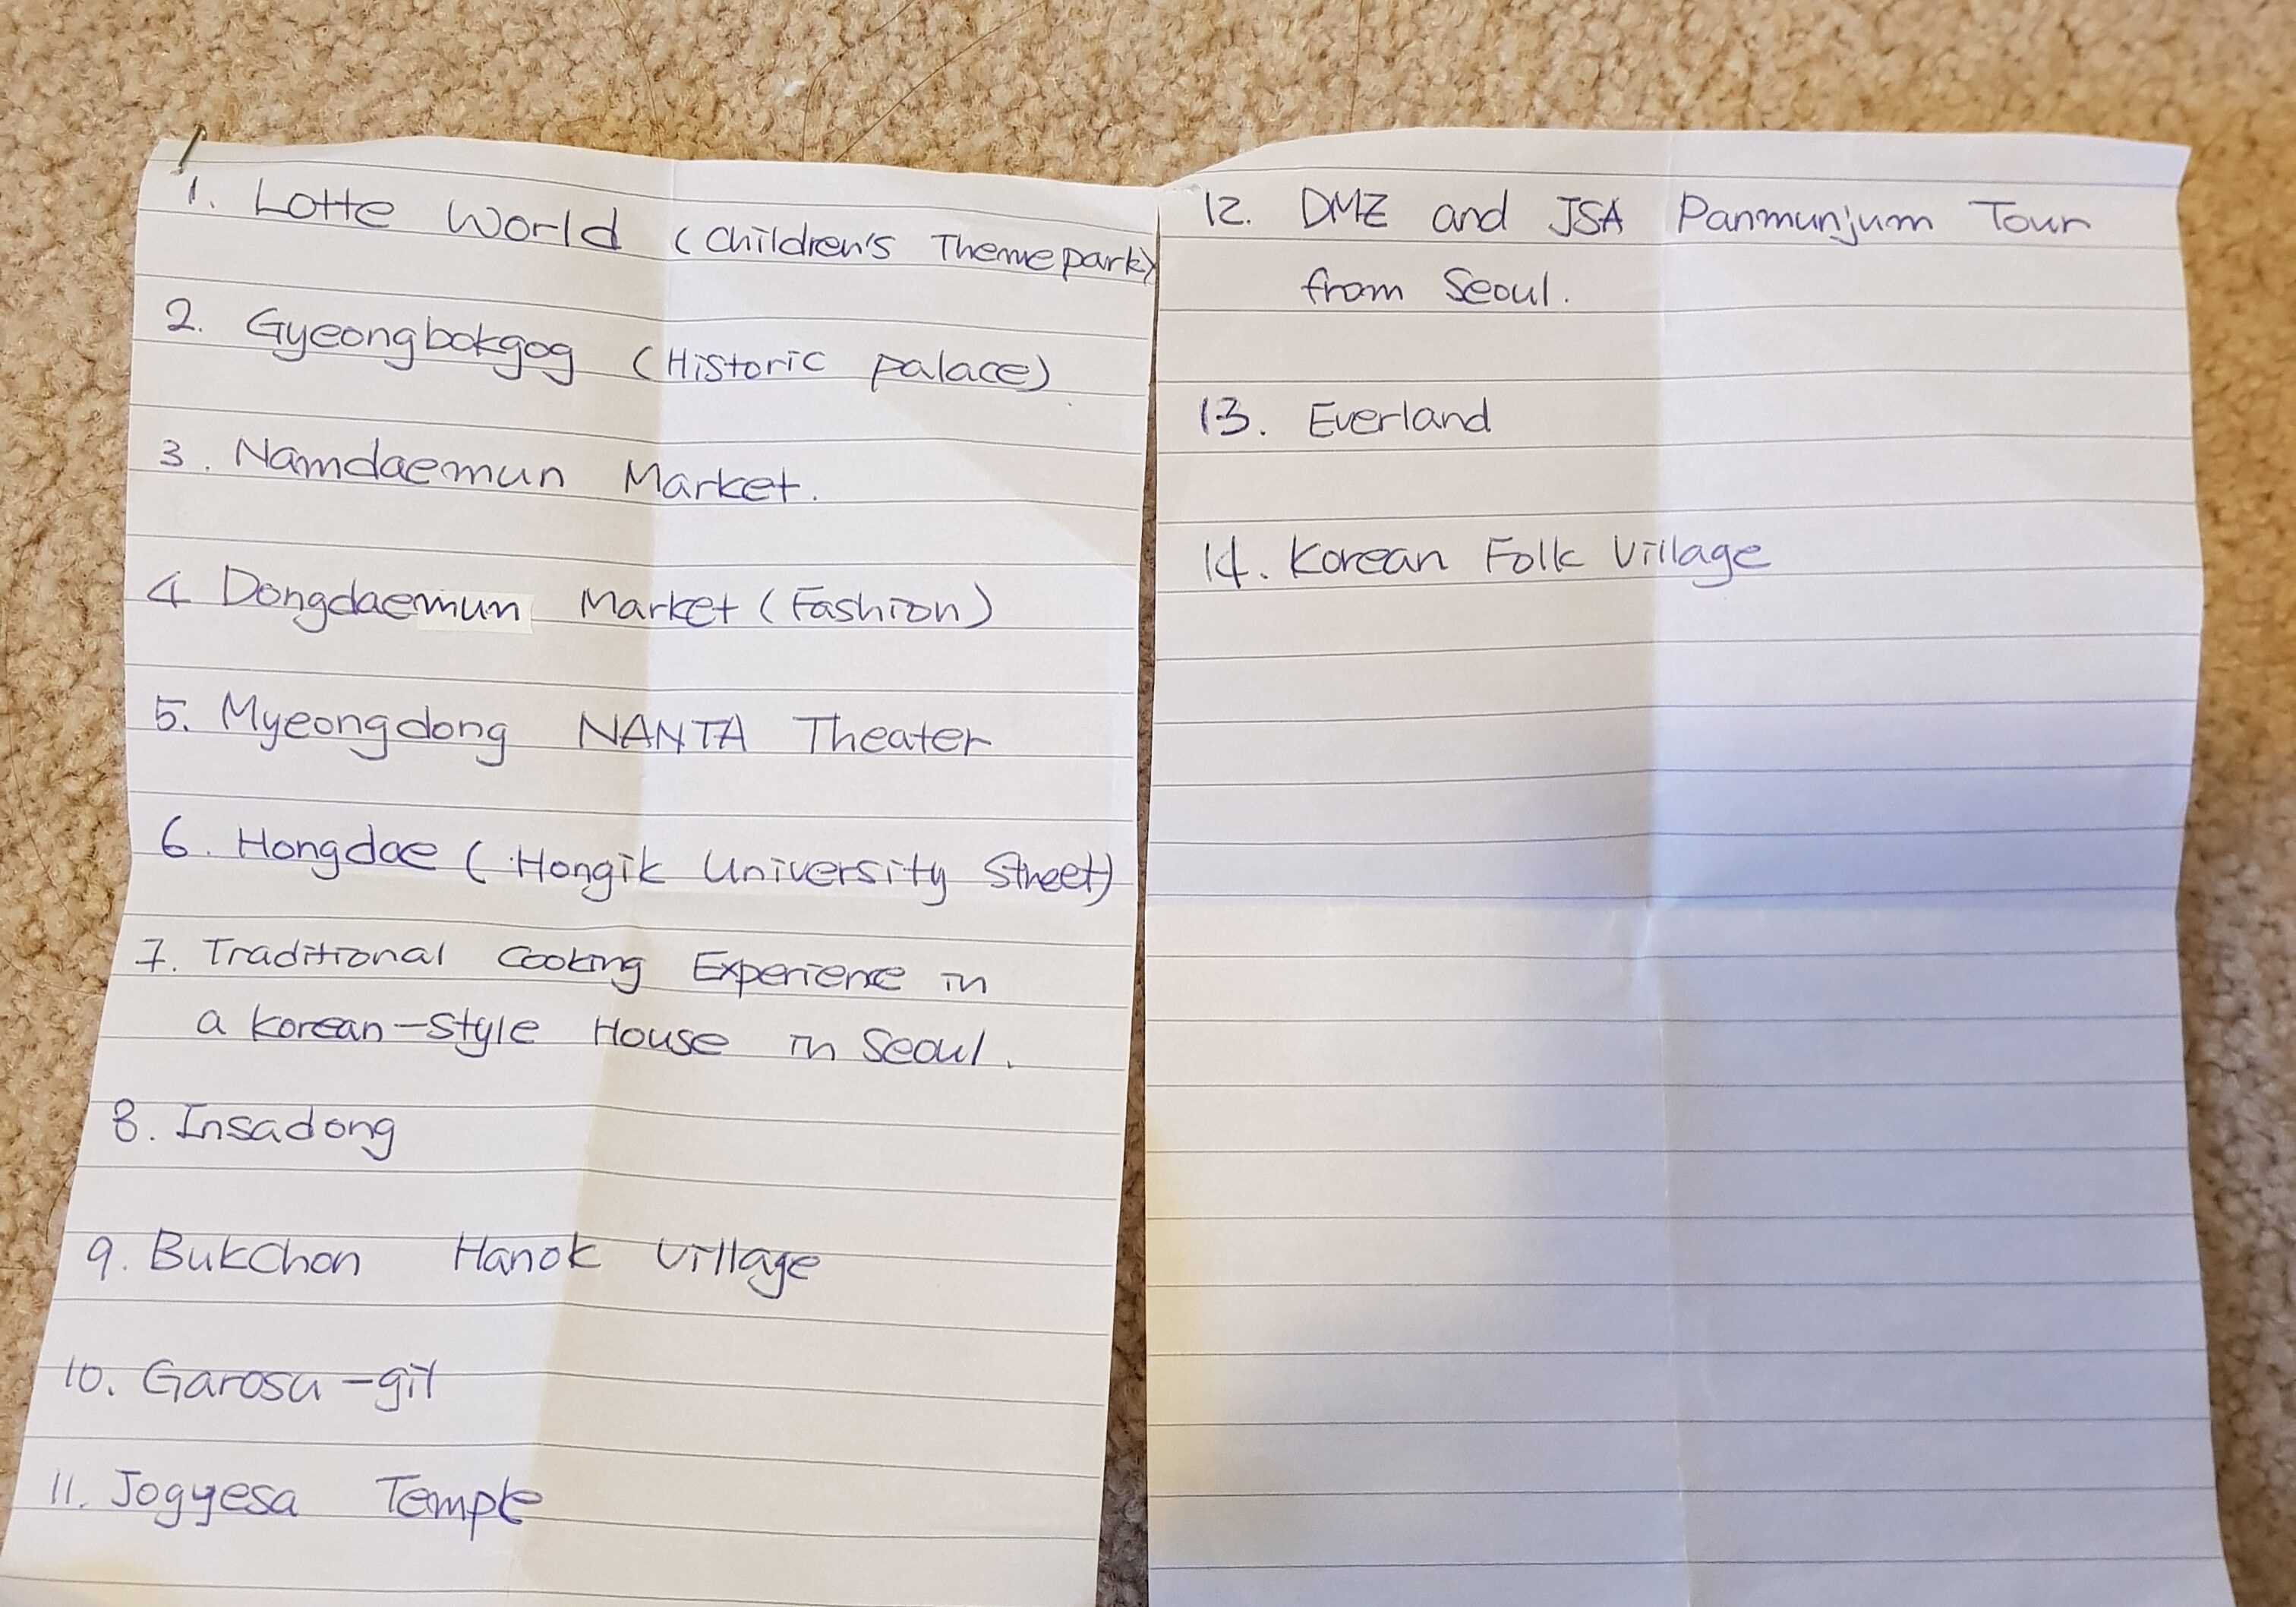 1. Lotte World (Children's Theme park)
2. Gyeongbokgog (Historic palace)
3. Namdaemun Market.
4 Dongdaemun Market (Fashion)
5. Myeongdong NANTA Theater
6. Hongdae (Hongik University Street)
7. Traditional Cooking Experience in
a Korean-style House in Seoul.
8. Insadong
9. Bukchon Hanok Village
10. Garosu-gil
11. Jogyesa Temple
12. DMZ and JSA Panmunjum Tour
from Seoul.
13. Everland
14. Korean Folk Village